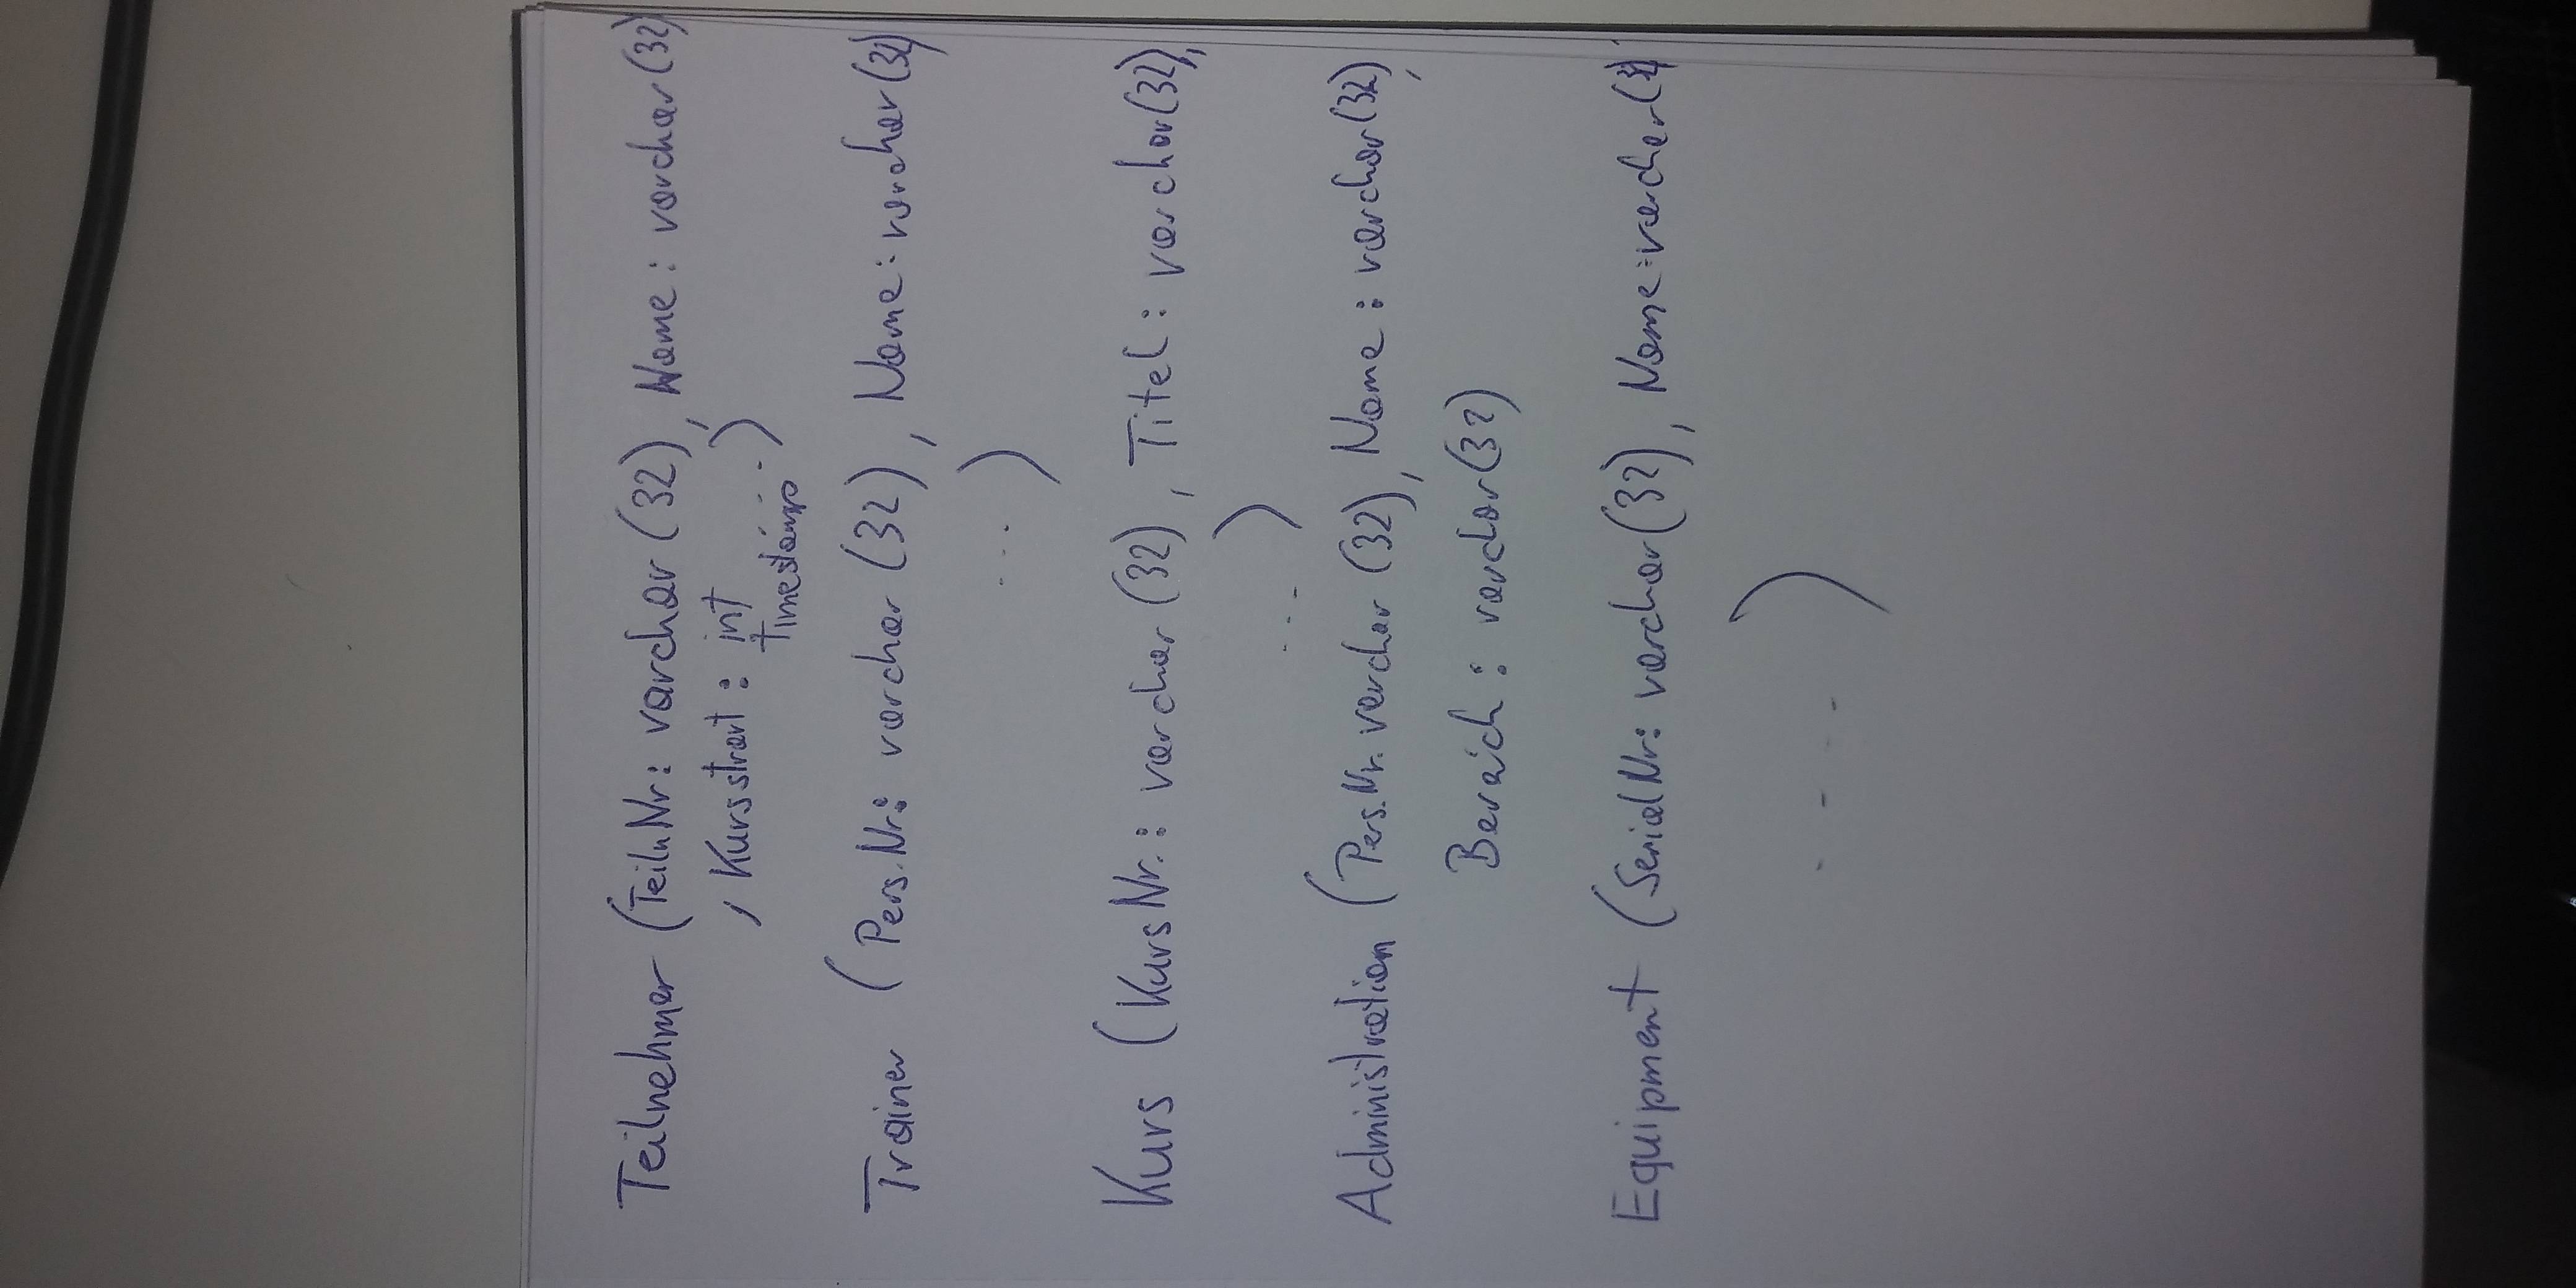 Teilnehmer (TeilnNr: varchar (32), Name: varchar (32)
, Kursstart: int ....)
timestamp
Trainer (Pers.Nr: varchar (32), Name: varchar (32)
...)
Kurs (KursNr.: varchar (32), Titel: varchar (32),
...)
Administration (Pers.Nr. varchar (32), Name: varchar (32),
Bereich: varchar (32)
Equipment (SerialNr: varchar (32), Name: varchar (32)
....)